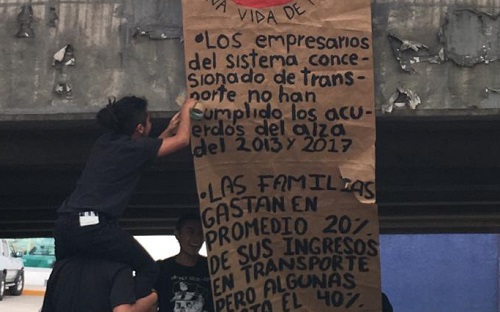 NA VIDA DE
•LOS empresarios
del sistema conce-
sionado de trans-
porte no han
cumplido los acu-
erdos del alza
del 2013 y 2017
•LAS FAMILIAS
GASTAN EN
PROMEDIO 20%
DE SUS INGRESOS
EN TRANSPORTE
PERO ALGUNAS
EL 40%